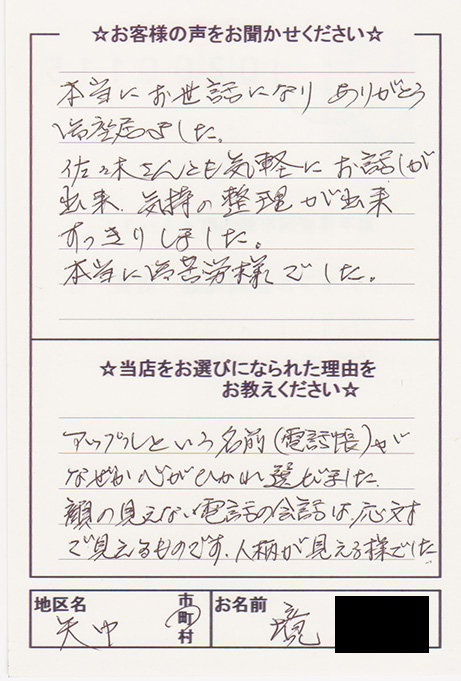 ☆お客様の声をお聞かせください☆
本当にお世話になり ありがとう
御座居ました。
佐々木さんとも気軽にお話しが
出来、気持の整理が出来
すっきりしました。
本当に御苦労様でした。
☆当店をお選びになられた理由を
お教えください☆
アップルという名前(電話帳)が
なぜか心がひかれ選びました。
顔の見えない電話の会話は、応対
で見えるものです、人柄が見える様でした
地区名 市 町 村 お名前
矢巾 境